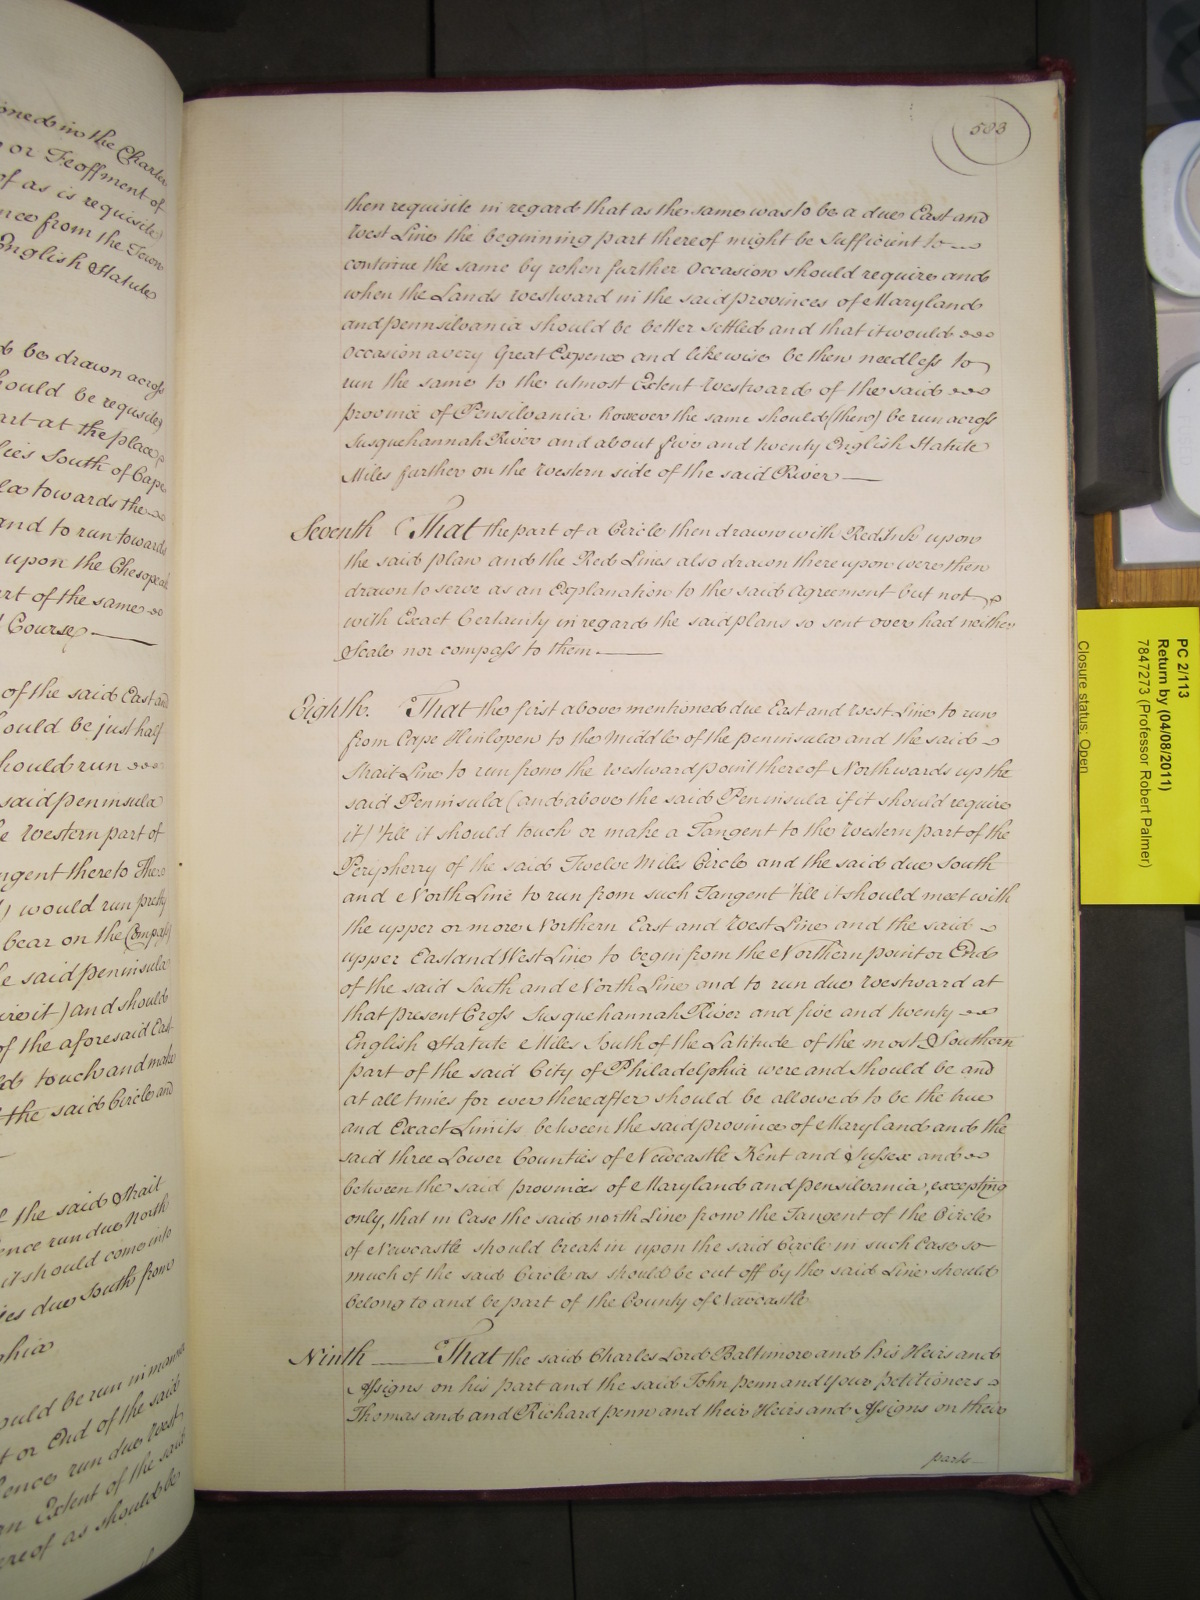 oned in the Charter
or Feoffment of
of as is requisite
nce from the Town
English Statute
d be drawn across
hould be requisite)
art at the place
lies South of Cape
la towards the
and to run towards
upon the Chesopeak
rt of the same
Course
of the said East and
ould be just half
hould run
said peninsula
e Western part of
ngent thereto There
) would run pretty
bear on the Compass
e said peninsula
ire it) and should
of the aforesaid East
ld touch and make
the said Circle and
the said Strait
ence run due North
it should come into
ies due South from
phia
ould be run in manner
t or End of the said
ence run due West
an Extent of the said
ereof as should be
583
then requisite in regard that as the same was to be a due East and
West Line the beginning part thereof might be Sufficient to
continue the same by when further Occasion should require and
when the Lands Westward in the said provinces of Maryland
and pennsilvania should be better settled and that it would
Occasion a very Great Expence and likewise be then needless to
run the same to the utmost Extent Westward of the said
province of Pensilvania however the same should (then) be run across
Susquehannah River and about five and twenty English Statute
Miles further on the Western side of the said River
Seventh That the part of a Circle then drawn with Red Ink upon
the said plan and the Red Lines also drawn thereupon were then
drawn to serve as an Explanation to the said Agreement but not
with Exact Certainty in regard the said plans so sent over had neither
Scale nor compass to them
Eighth. That the first above mentioned due East and West Line to run
from Cape Hinlopen to the Middle of the peninsula and the said
Strait Line to run from the Westward point thereof Northwards up the
said Peninsula (and above the said Peninsula if it should require
it) 'till it should touch or make a Tangent to the Western part of the
Peripherry of the said Twelve Miles Circle and the said due South
and North Line to run from such Tangent 'till it should meet with
the upper or more Northern East and West Line and the said
upper East and West Line to begin from the Northern point or End
of the said South and North Line and to run due Westward at
that present Cross Susquehannah River and five and twenty
English Statute Miles South of the Latitude of the most Southern
part of the said City of Philadelphia were and should be and
at all times for ever thereafter should be allowed to be the true
and Exact Limits between the said province of Maryland and the
said three Lower Counties of Newcastle Kent and Sussex and
between the said provinces of Maryland and pensilvania, excepting
only, that in Case the said north Line from the Tangent of the Circle
of Newcastle should break in upon the said Circle in such Case so
much of the said Circle as should be cut off by the said Line should
belong to and be part of the County of Newcastle
Ninth That the said Charles Lord Baltimore and his Heirs and
Assigns on his part and the said John penn and Your petitioners
Thomas and and Richard penn and their Heirs and Assigns on their
part
PC 2/113
Return by (04/08/2011)
7847273 (Professor Robert Palmer)
Closure status: Open